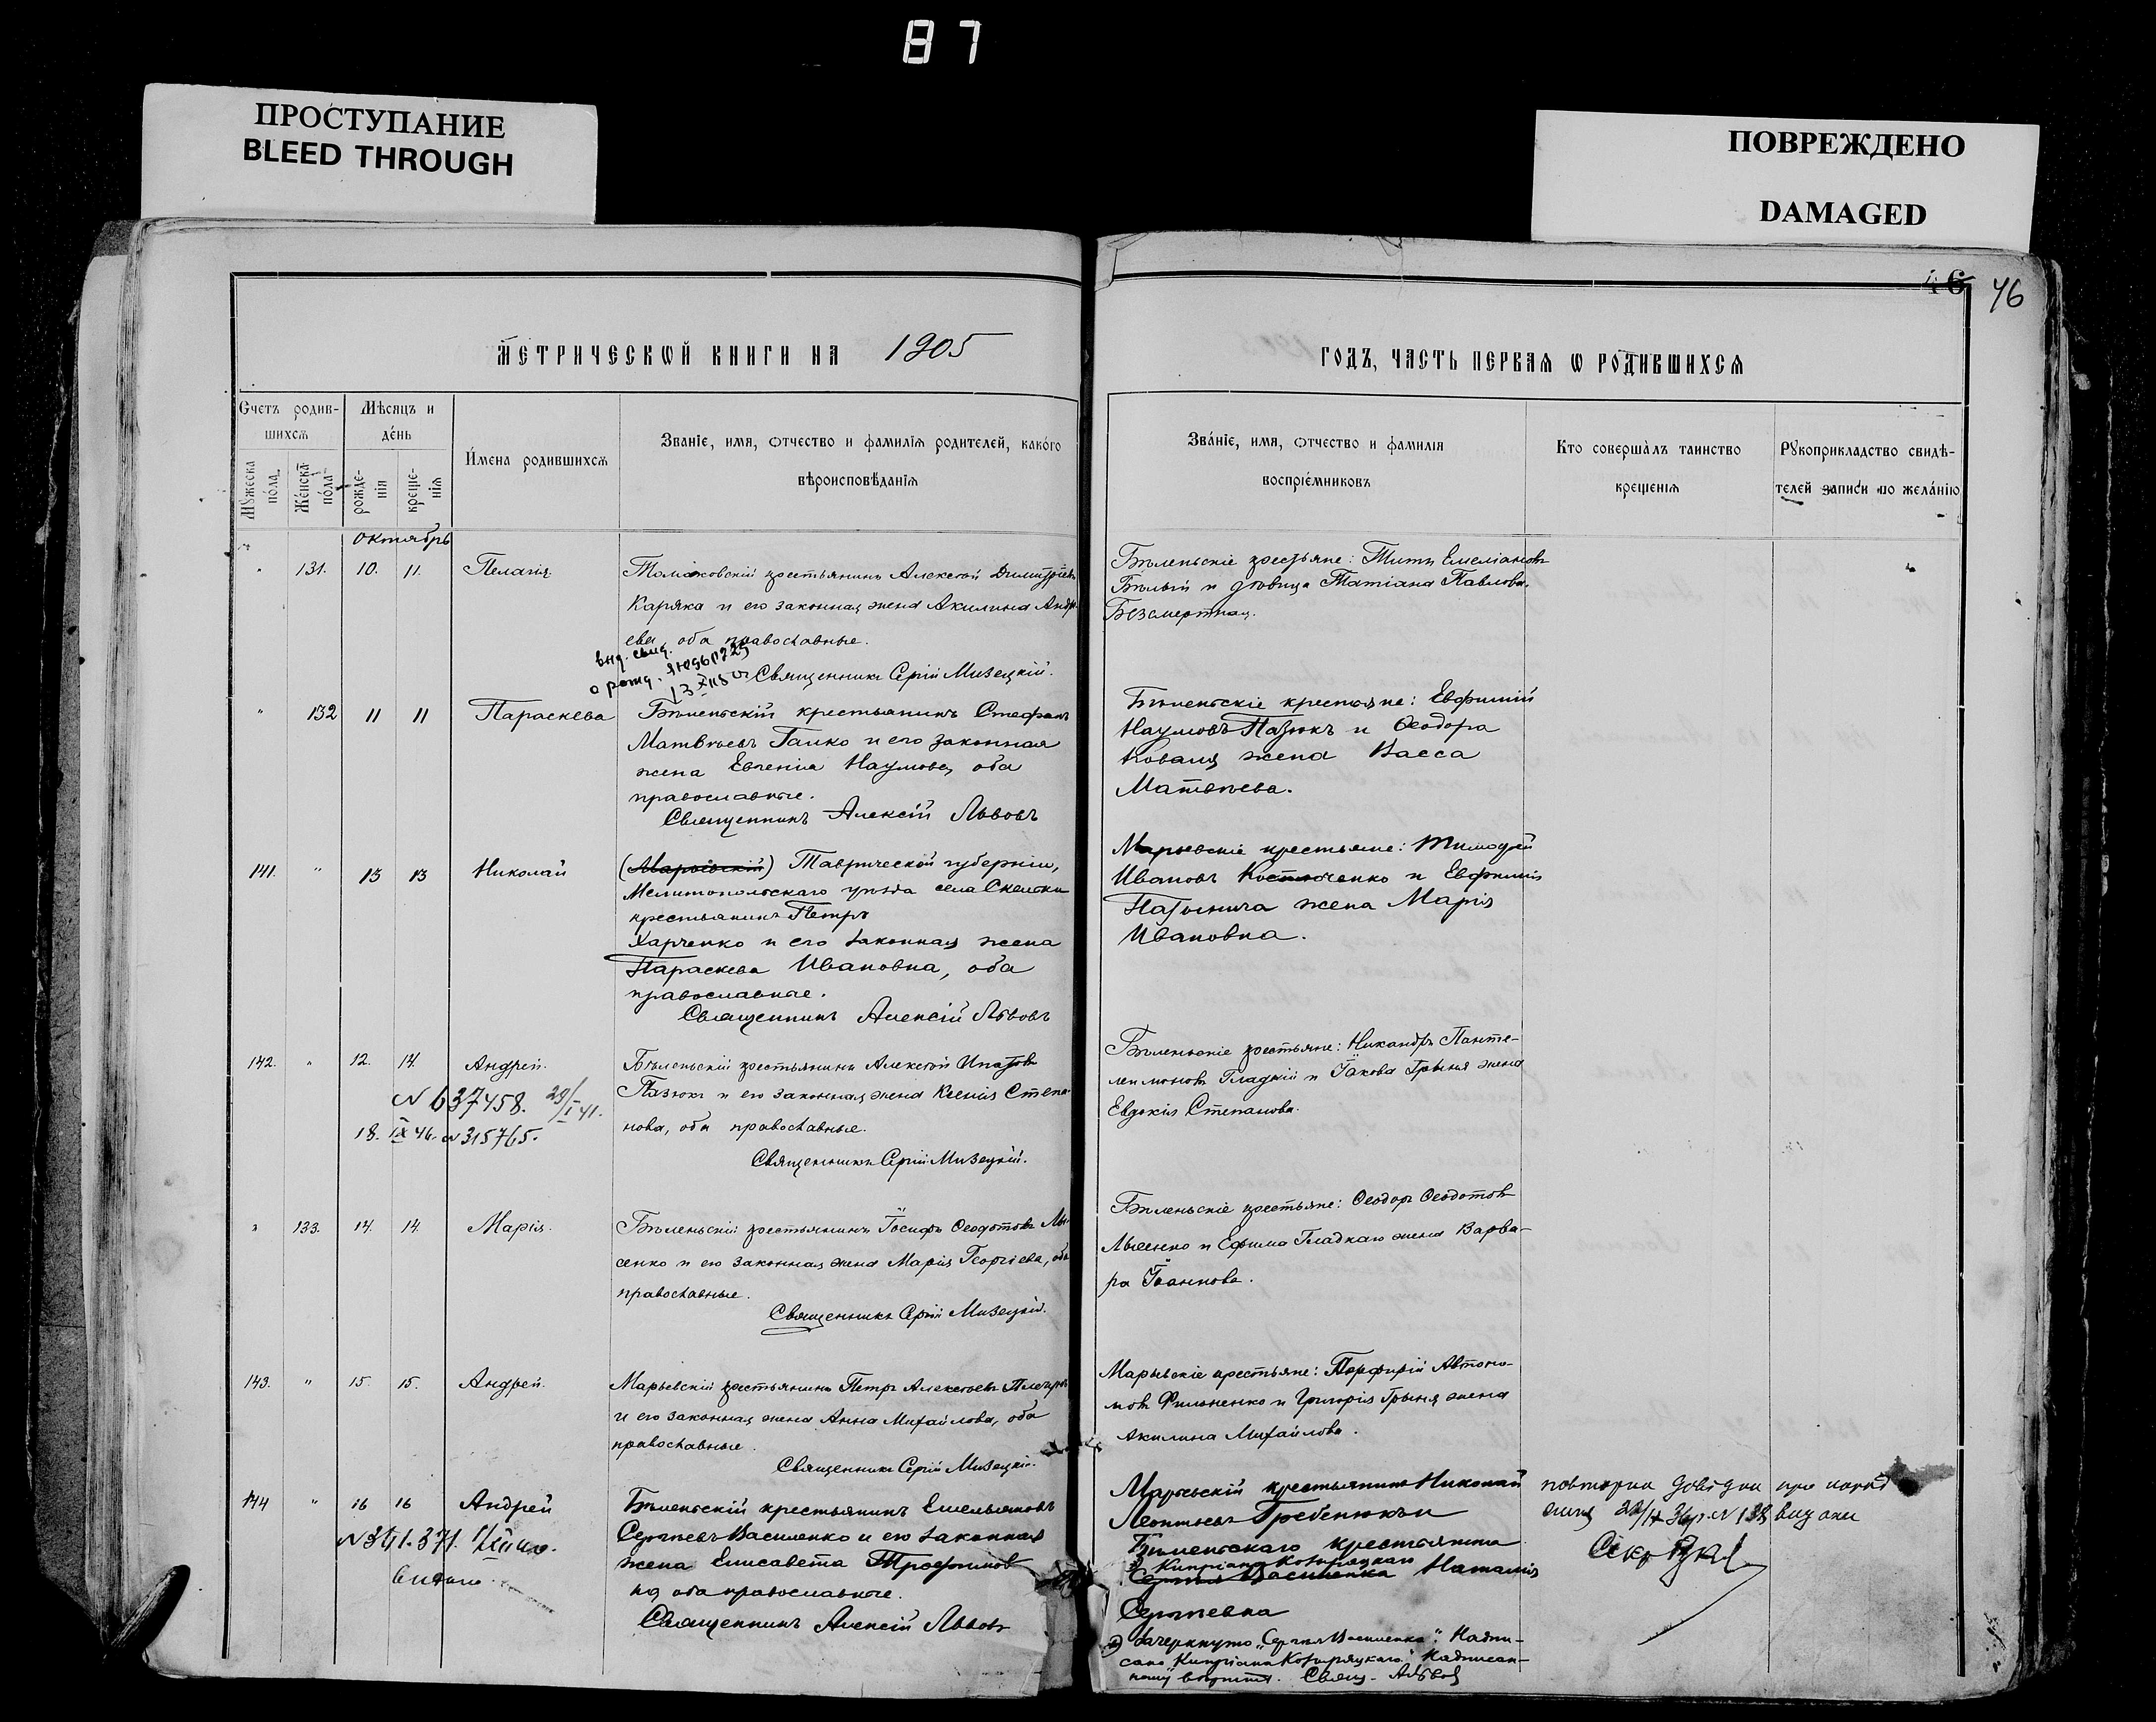 87
ПРОСТУПАНИЕ
BLEED THROUGH
ПОВРЕЖДЕНО
DAMAGED
46 46
МЕТРИЧЕСКѠЙ КНИГИ НА 1905
ГОДЪ, ЧАСТЬ ПЕРВАѦ Ѡ РОДИВШИХСѦ
Счетъ родив-
шихсѧ
Мѣсяцъ и
де́нь
Мꙋжеска по́ла.
Же́нска по́ла
рожде-
нія
креще-
нія
И́мена родившихсѧ
Званіе, имя, ѻтчество и фамилїѧ родителей, како́го
вѣроисповѣданіѧ
Зва́ніе, имя, ѻтчество и фамиліѧ
воспрїе́мниковъ
Кто соверша̀лъ таинство
крещеніѧ
Рꙋкоприкладство свидѣ-
телей записи по жела́нію
Октябрь
" 131. 10. 11. Пелагія
Томаковскій крестьянинъ Алексѣй Димитріевъ
Каряка и его законная жена Акилина Андре-
ева, оба православные.
Священникъ Сергій Мизецкій.
Бѣленьскіе крестьяне: Титъ Емеліановъ
Бѣлый и дѣвица Татіана Павлова
Безсмертная.
вид. свид.
о рожд.
" 132 11 11 Параскева
Бѣленьскій крестьянинъ Стефанъ
Матвѣевъ Галко и его законная
жена Евгенія Наумова, оба
православные.
Священникъ Алексій Львовъ
Бѣленьскіе крестьяне: Евфимій
Наумовъ Пазюкъ и Ѳеодора
Коваля жена Васса
Матвѣева.
141. " 13 13 Николай
(Марьевскій) Таврической губерніи,
Мелитопольскаго уѣзда села Скельки
крестьянинъ Петръ
Харченко и его законная жена
Параскева Ивановна, оба
православные.
Священникъ Алексій Львовъ
Марьевскіе крестьяне: Тимофей
Ивановъ Костюченко и Евфимія
жена Марія
Ивановна.
142. " 12. 14. Андрей.
N 637458. 29/I 41.
18. IX 46. N 315765.
Бѣленьскій крестьянинъ Алексѣй Ипатовъ
Пазюкъ и его законная жена Ксенія Степа-
нова, оба православные.
Священникъ Сергій Мизецкій.
Бѣленьскіе крестьяне: Никандръ Панте-
леимоновъ Гладкій и Іакова Грыня жена
Евдокія Степанова.
" 133. 14. 14. Марія.
Бѣленьскій крестьянинъ Іосифъ Ѳеодотовъ Лы-
сенко и его законная жена Марія Георгіева, оба
православные.
Священникъ Сергій Мизецкій.
Бѣленьскіе крестьяне: Ѳеодоръ Ѳеодотовъ
Лысенко и Ефима Гладкаго жена Варва-
ра Іоаннова.
143. " 15. 15. Андрей.
Марьевскій крестьянинъ Петръ Алексѣевъ
и его законная жена Анна Михайлова, оба
православные.
Священникъ Сергій Мизецкій.
Марьевскіе крестьяне: Порфирій Автоно-
мовъ Филоненко и Григорія Грыня жена
Акилина Михайлова.
144 " 16 16 Андрей
Бѣленьскій крестьянинъ Емельяновъ
Сергѣевъ Василенко и его законная
жена Елисавета Трофимов-
на оба православные.
Священникъ Алексій Львовъ
Марьевскій крестьянинъ Николай
Леонтьевъ Гребенюкъ и
Бѣленьскаго крестьянина
Кипріана Козырацкаго
Сергѣя Василенка Наталія
Сергѣевна
Зачеркнуто „Сергѣя Василенка". Надпи-
сано „Кипріана Козырацкаго". Надписан-
ному вѣрить. Свящ. Львовъ
повторна довідка про народ
видана